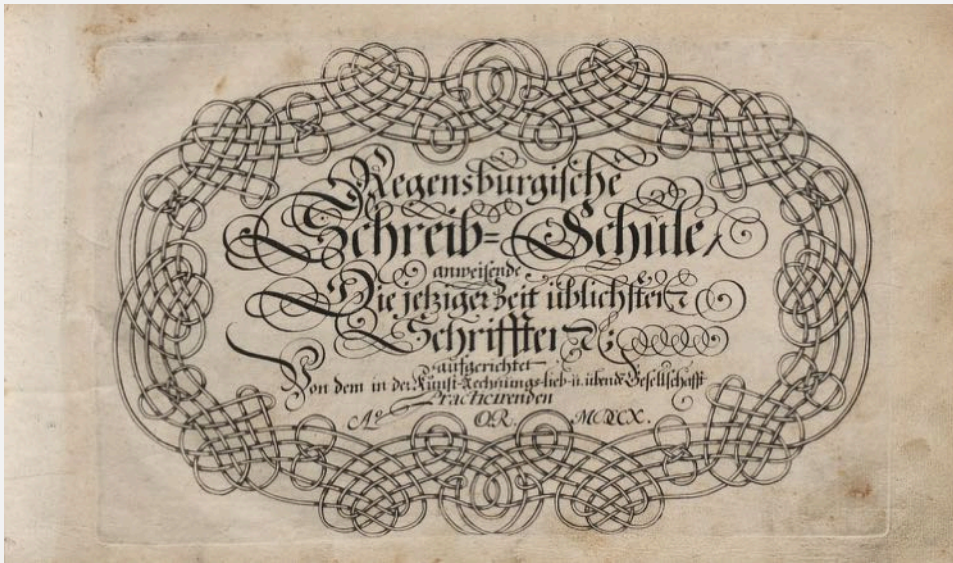 Regensburgische
Schreib= Schule,
anweisende
Die jetziger Zeit üblichsten
Schrifften
aufgerichtet
Von dem in der Kunst-Rechnungs-lieb-u. übende Gesellschafft
Practicirenden
Aº O.R. MDCX.